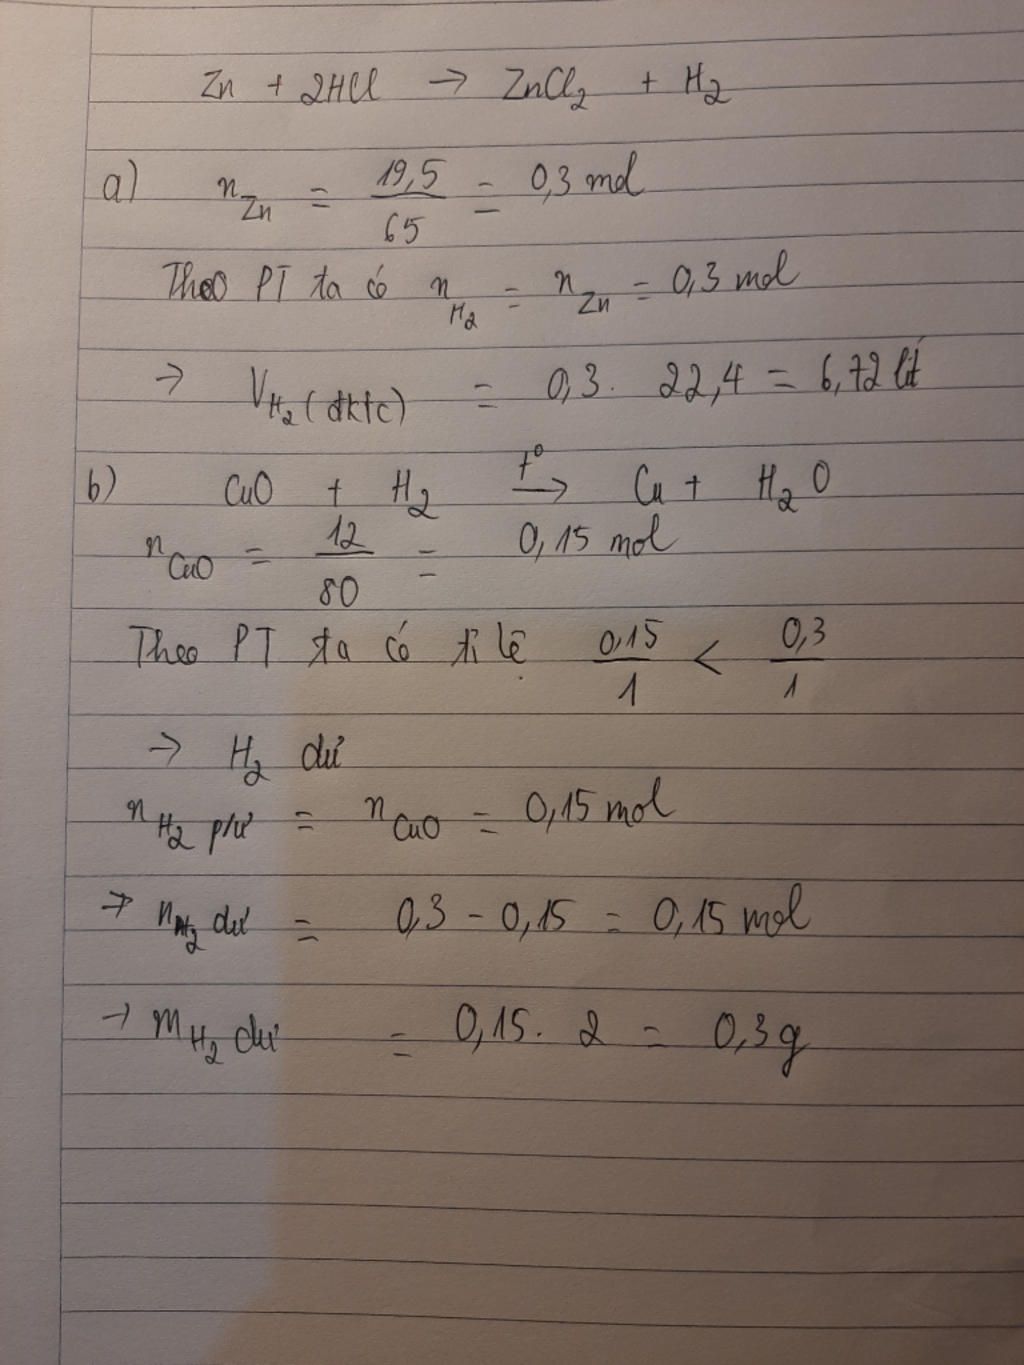 Zn + 2HCl → ZnCl₂ + H₂
a) n_Zn = 19,5/65 = 0,3 mol
Theo PT ta có n_H₂ = n_Zn = 0,3 mol
→ V_H₂(đktc) = 0,3. 22,4 = 6,72 lít
b) CuO + H₂ →(t°) Cu + H₂O
n_CuO = 12/80 = 0,15 mol
Theo PT ta có tỉ lệ 0,15/1 < 0,3/1
→ H₂ dư
n_H₂ p/ư = n_CuO = 0,15 mol
→ n_H₂ dư = 0,3 - 0,15 = 0,15 mol
→ m_H₂ dư = 0,15. 2 = 0,3g